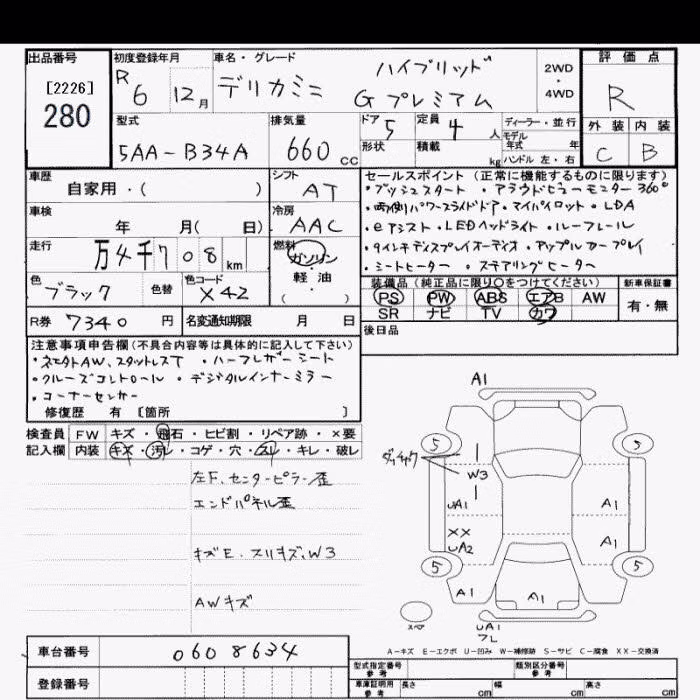 出品番号
[2226]
280
初度登録年月
R6 12月
車名・グレード
デリカミニ
ハイブリッド
Gプレミアム
2WD
・
4WD
評価点
R
外装 内装
C B
型式
5AA-B34A
排気量
660 cc
ドア 5
形状
定員 4 人
積載 kg
ディーラー・並行
モデル
年式 年
ハンドル 左・右
車歴
自家用・( )
シフト
AT
車検
年 月( 日)
冷房
AAC
走行
万4千708 km
燃料
ガソリン
・
軽油
( )
色
ブラック
色替
色コード
X42
R券 7340 円
名変通知期限 月 日
セールスポイント(正常に機能するものに限ります)
・プッシュスタート ・アラウンドビューモニター360°
・両側パワースライドドア・マイパイロット・LDA
・eアシスト・LEDヘッドライト・ルーフレール
・9インチディスプレイオーディオ・アップルカープレイ
・シートヒーター ・ステアリングヒーター
装備品(純正品に限り○をつけてください)
PS PW ABS エアB AW
SR ナビ TV カワ
新車保証書
有・無
後日品
注意事項申告欄(不具合内容等は具体的に記入して下さい)
・社外AW、スタッドレスT ・ハーフレザーシート
・クルーズコントロール ・デジタルインナーミラー
・コーナーセンサー
修復歴 有 〔箇所 〕
検査員 FW キズ・飛石・ヒビ割・リペア跡・×要
記入欄 内装 キズ・汚レ・コゲ・穴・スレ・キレ・破レ
左F、センターピラー歪
エンドパネル歪
キズE、スリキズ、W3
AWキズ
A1
5 5
W3
UA1 A1
XX
UA2 A1
5 5
A1 A1
スペア
UA1
A-キズ E-エクボ U-凹み W-補修跡 S-サビ C-腐食 XX-交換済
車台番号 0608634
登録番号
型式指定番号
参考
類別区分番号
参考
車庫証明用
参考
長さ cm 幅 cm 高さ cm